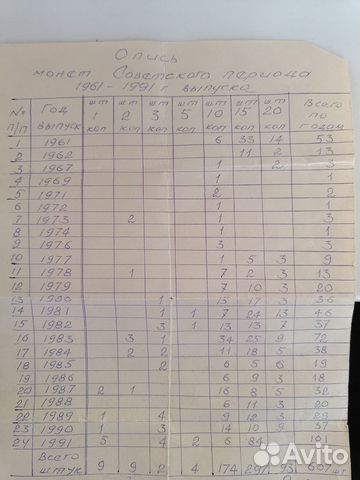 Опись
монет Советского периода
1961-1991 г выпуска
№ п/п Год выпуск шт 1 коп шт 2 коп шт 3 коп шт 5 коп шт 10 коп шт 15 коп шт 20 коп Всего по годам
1 1961 6 33 14 53
2 1962 11 2 13
3 1967 1 2 3
4 1969 1 1
5 1971 2 2
6 1972 1 1
7 1973 2 1 3
8 1974 1 1
9 1976 3 3
10 1977 1 5 3 9
11 1978 1 7 2 3 13
12 1979 7 10 3 20
13 1980 1 15 17 3 36
14 1981 1 1 7 24 13 46
15 1982 3 1 13 13 7 37
16 1983 3 1 34 25 9 72
17 1984 2 2 11 18 5 38
18 1985 2 6 5 6 19
19 1986 6 9 3 18
20 1987 2 1 16 8 5 32
21 1988 6 11 3 20
22 1989 1 4 9 12 3 29
23 1990 1 3 14 10 9 37
24 1991 5 4 2 6 84 101
Всего штук 9 9 2 4 174 291 93 607 шт
Avito